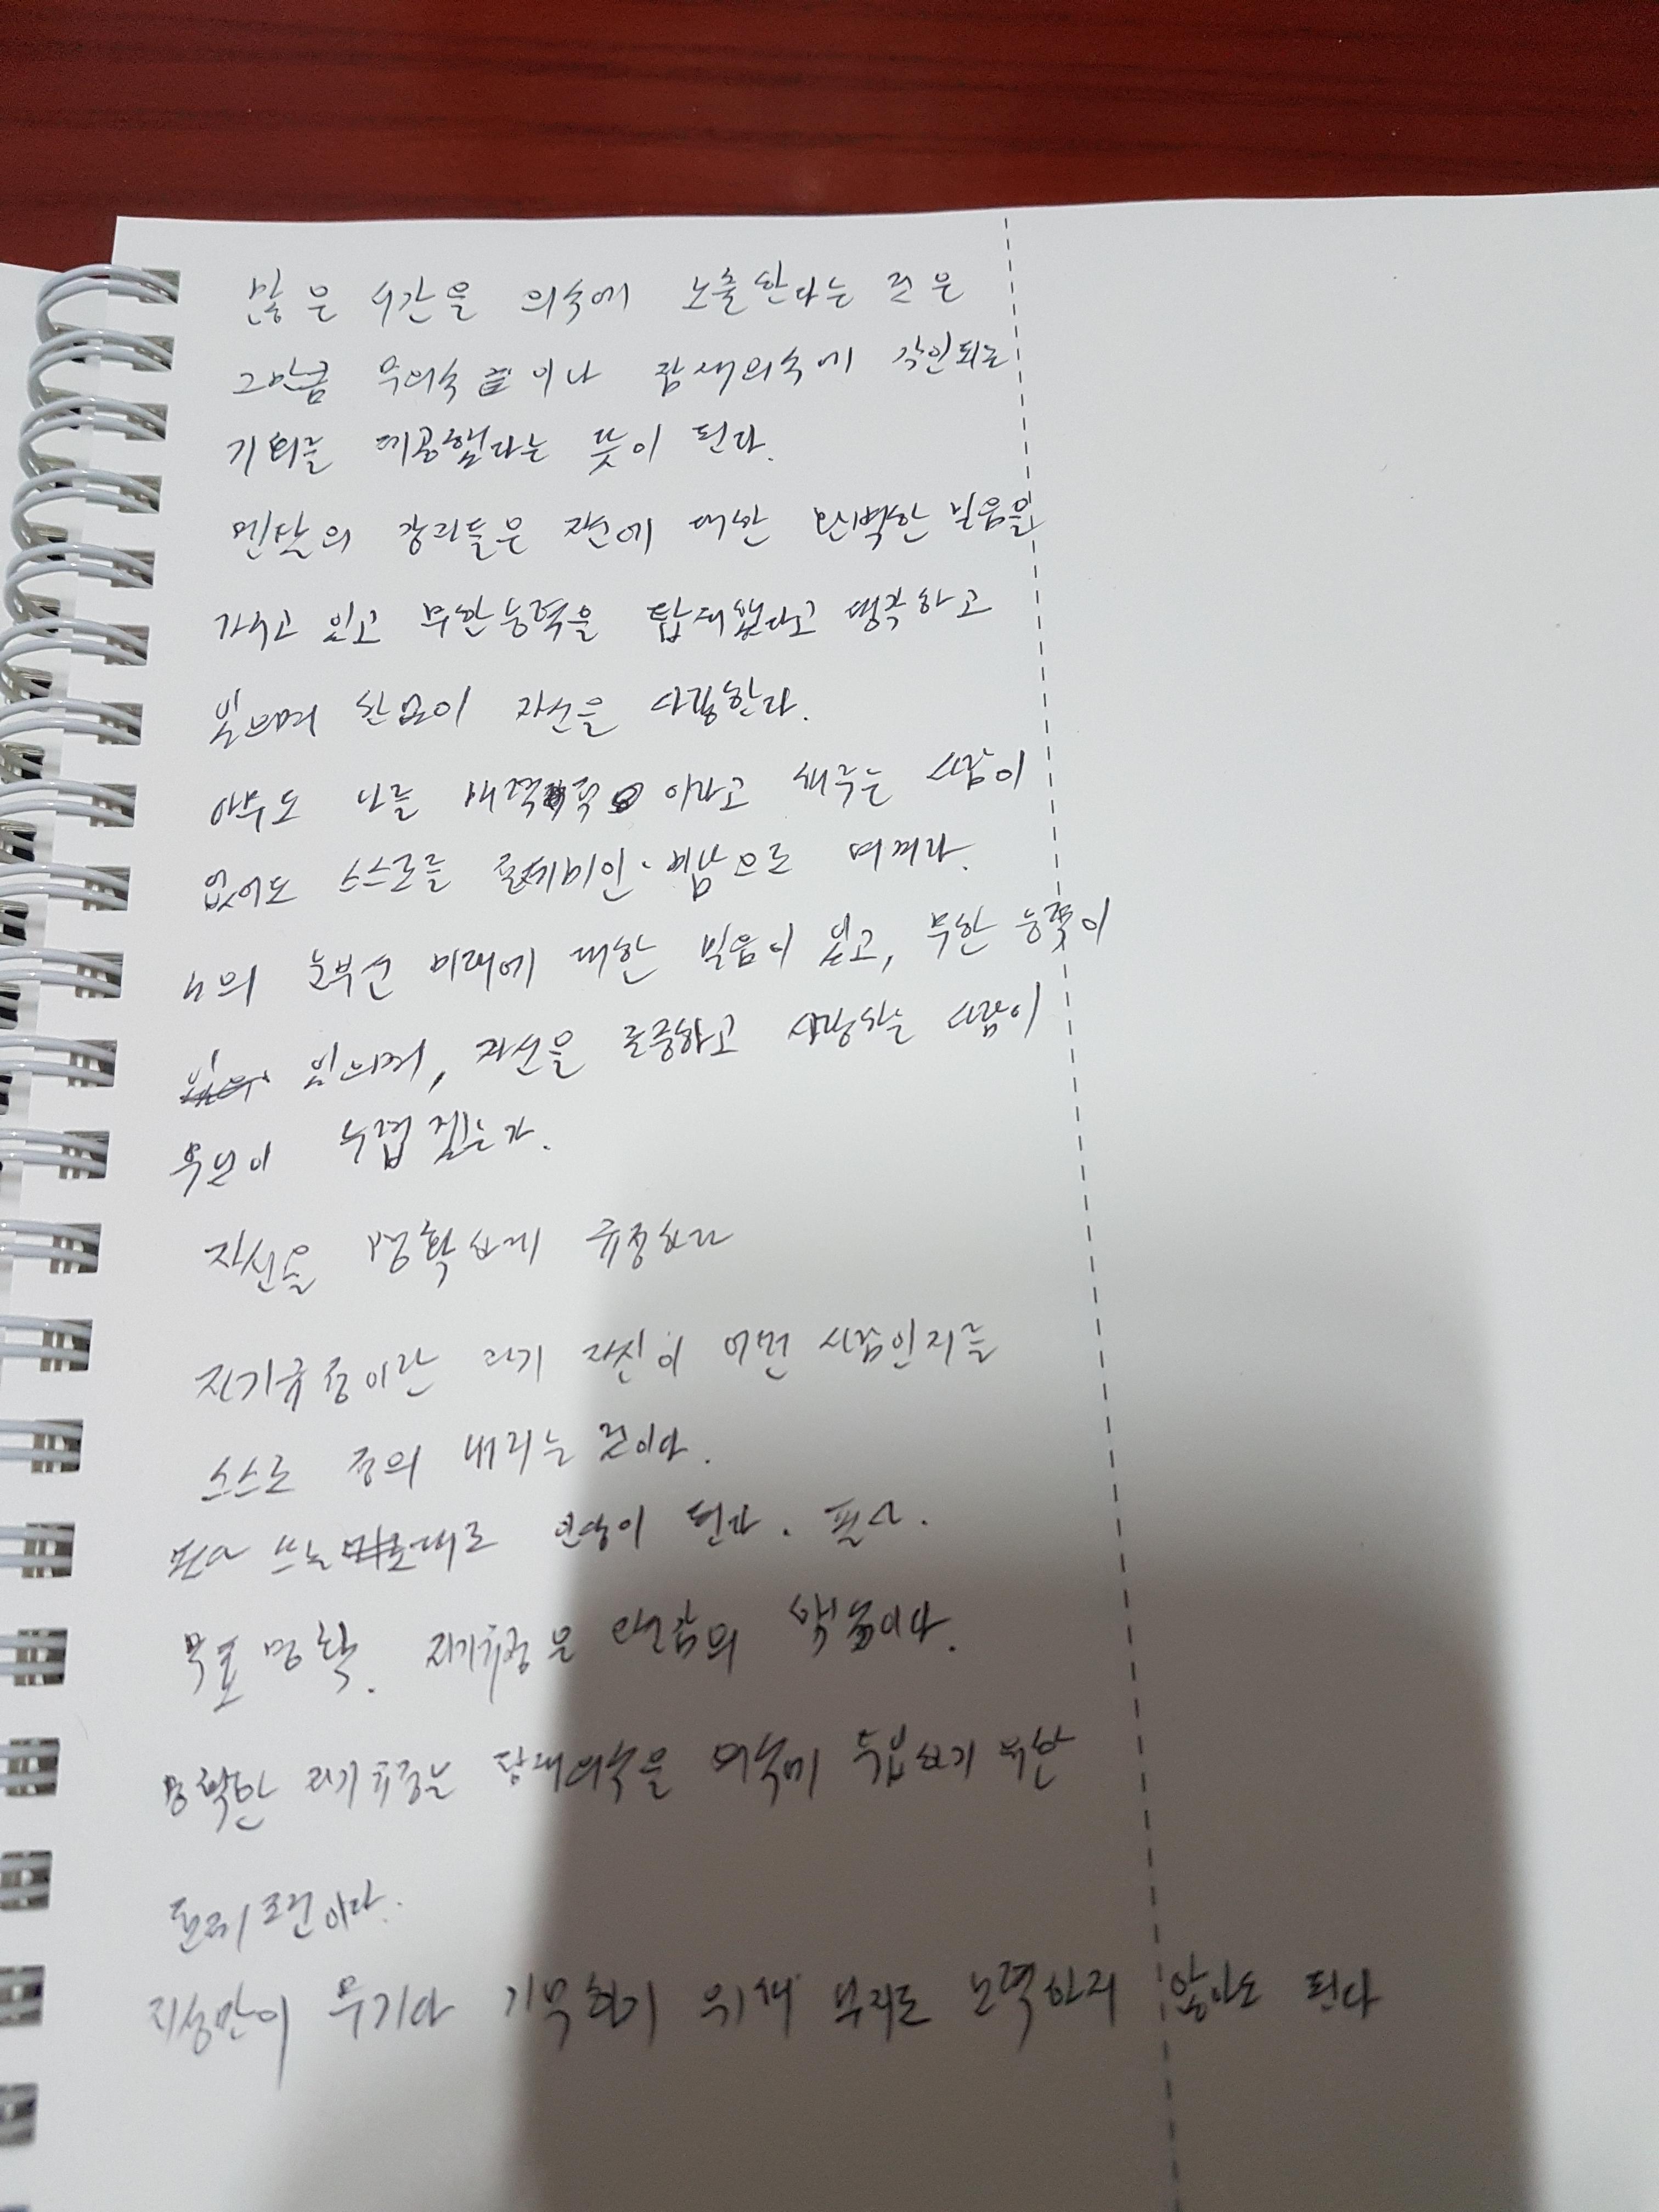 많은 시간을 의식에 노출한다는 것은
그만큼 무의식 이나 잠재의식에 각인되는
기회를 제공했다는 뜻이 된다.
멘탈의 강자들은 자신에 대한 완벽한 믿음을
가지고 있고 무한능력을 탑재했다고 생각하고
있으며 한없이 자신을 사랑한다.
아무도 나를 매력적 이라고 해주는 사람이
없어도 스스로를 절세미인·미남으로 여겨라.
눈부신 미래에 대한 믿음이 있고, 무한 능력이
있으며, 자신을 존중하고 사랑하는 사람이
무엇이 두렵겠는가.
자신을 명확하게 규정하라
자기규정이란 자기 자신이 어떤 사람인지를
스스로 정의 내리는 것이다.
쓰는 대로 현상이 된다.
목표 명확. 자기규정은 의 핵심이다.
명확한 자기규정은 잠재의식을 의식에 주입하기 위한
전제조건이다.
지성만이 무기다 기억하기 위해 부러 노력하지 않아도 된다